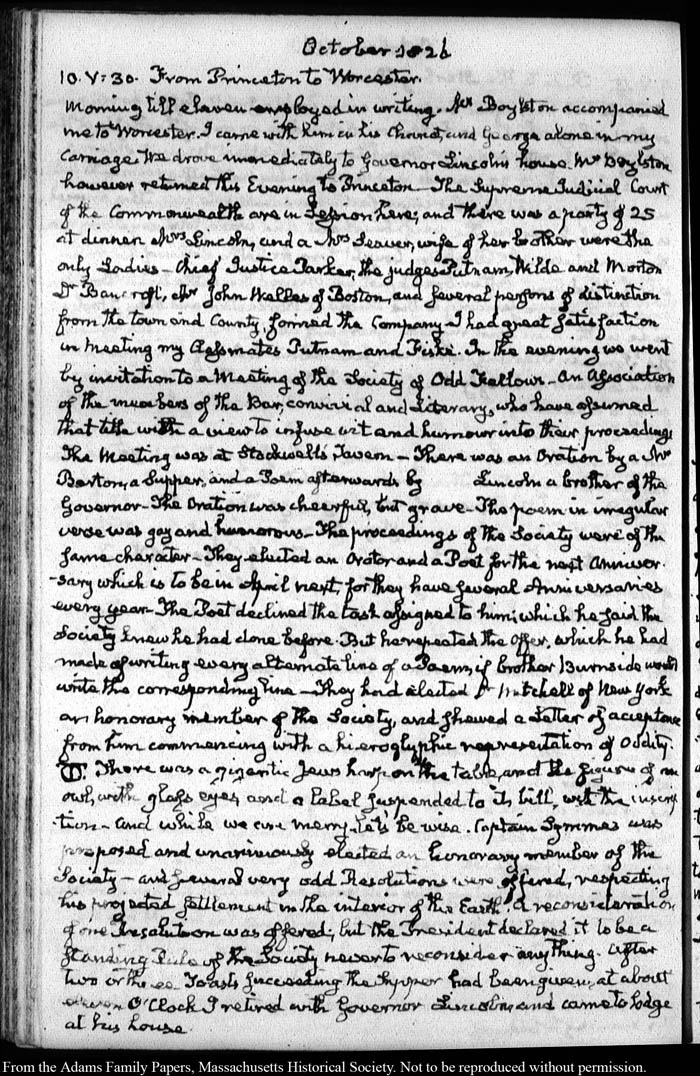 October 1826
10. V:30. From Princeton to Worcester.
Morning till eleven employed in writing. Mr Boylston accompanied
me to Worcester. I came with him in his Chariot, and George alone in my
Carriage. We drove immediately to Governor Lincoln's house. Mr Boylston
however returned this Evening to Princeton — The Supreme Judicial Court
of the Commonwealth are in Session here; and there was a party of 25
at dinner. Mrs Lincoln, and a Mrs Seaver, wife of her brother were the
only Ladies — Chief Justice Parker, the judges Putnam, Wilde and Morton
Dr Bancroft, Mr John Welles of Boston, and several persons of distinction
from the town and County, formed the Company — I had great satisfaction
in meeting my Classmates Putnam and Fiske. In the evening we went
by invitation to a Meeting of the Society of Odd Fellows — An Association
of the members of the Bar, convivial and Literary, who have assumed
that title with a view to infuse wit and humour into their proceedings
The Meeting was at Stockwell's Tavern — There was an Oration by a Mr
Barton, a Supper, and a Poem afterwards by Lincoln a brother of the
Governor — The Oration was cheerful, but grave — The poem in irregular
verse was gay and humorous — The proceedings of the Society were of the
same character — They elected an Orator and a Poet for the next Anniver-
-sary which is to be in April next, for they have several Anniversaries
every year — The Poet declined the task assigned to him; which he said the
Society knew he had done before. But he repeated the Offer, which he had
made of writing every alternate line of a Poem, if brother Burnside would
write the corresponding line — They had elected Dr Mitchell of New York
an honorary member of the Society, and shewed a Letter of acceptance
from him commencing with a hieroglyphic representation of Oddity.
There was a gigantic Jews harp on the table, and the figure of an
owl, with glass eyes, and a label suspended to its bill, with the inscrip
tion — And while we are merry, let's be wise. Captain Symmes was
proposed and unanimously elected an honorary member of the
Society — and several very odd Resolutions were offered, respecting
his projected settlement in the interior of the Earth. A reconsideration
of one Resolution was offered; but the President declared it to be a
standing Rule of the Society never to reconsider any thing. After
two or three Toasts succeeding the Supper had been given, at about
eleven O'Clock I retired with Governor Lincoln, and came to lodge
at his house.
From the Adams Family Papers, Massachusetts Historical Society. Not to be reproduced without permission.